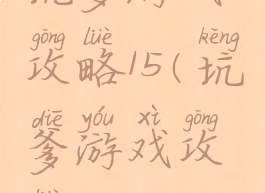 gōng lüè kēng
攻略15(坑
diē yóu xì gōng
爹游戏攻